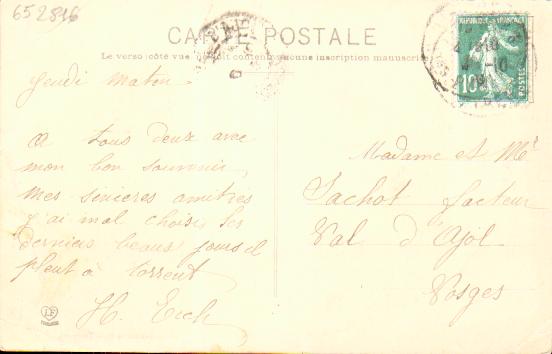 652816
CARTE POSTALE
Le verso (côté vue) contenir aucune inscription manuscrite
REPUBLIQUE FRANÇAISE
10
POSTES
Jeudi matin
A tous deux avec
mon bon souvenir
mes sincères amitiés
j'ai mal choisi les
derniers beaux jours il
pleut à torrent
H.
Madame et Mr
Jachot facteur
Val d'Ajol
Vosges
LF